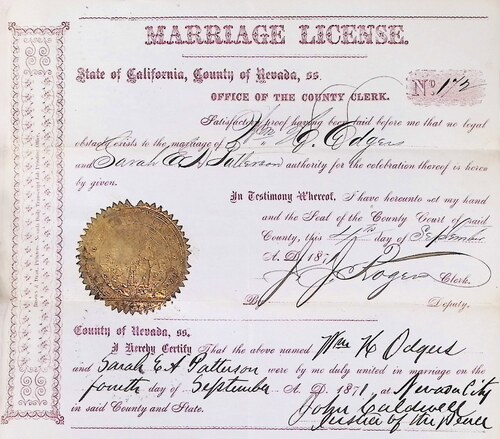 MARRIAGE LICENSE.
State of California, County of Nevada, ss.
No 172
OFFICE OF THE COUNTY CLERK.
Satisfactory proof having been said before me that no legal
obstacle exists to the marriage of Wm H Odgers
and Sarah E A Patterson authority for the celebration thereof is hereby
by given.
In Testimony Whereof, I have hereunto set my hand
and the Seal of the County Court of said
County, this 4th day of September
A. D. 1871
J. J. Rogers Clerk.
Deputy.
County of Nevada, ss.
I Hereby Certify That the above named Wm H Odgers
and Sarah E A Patterson were by me duly united in marriage on the
fourth day of September A. D. 1871 at Nevada City
in said County and State.
John Caldwell
Justice of the Peace